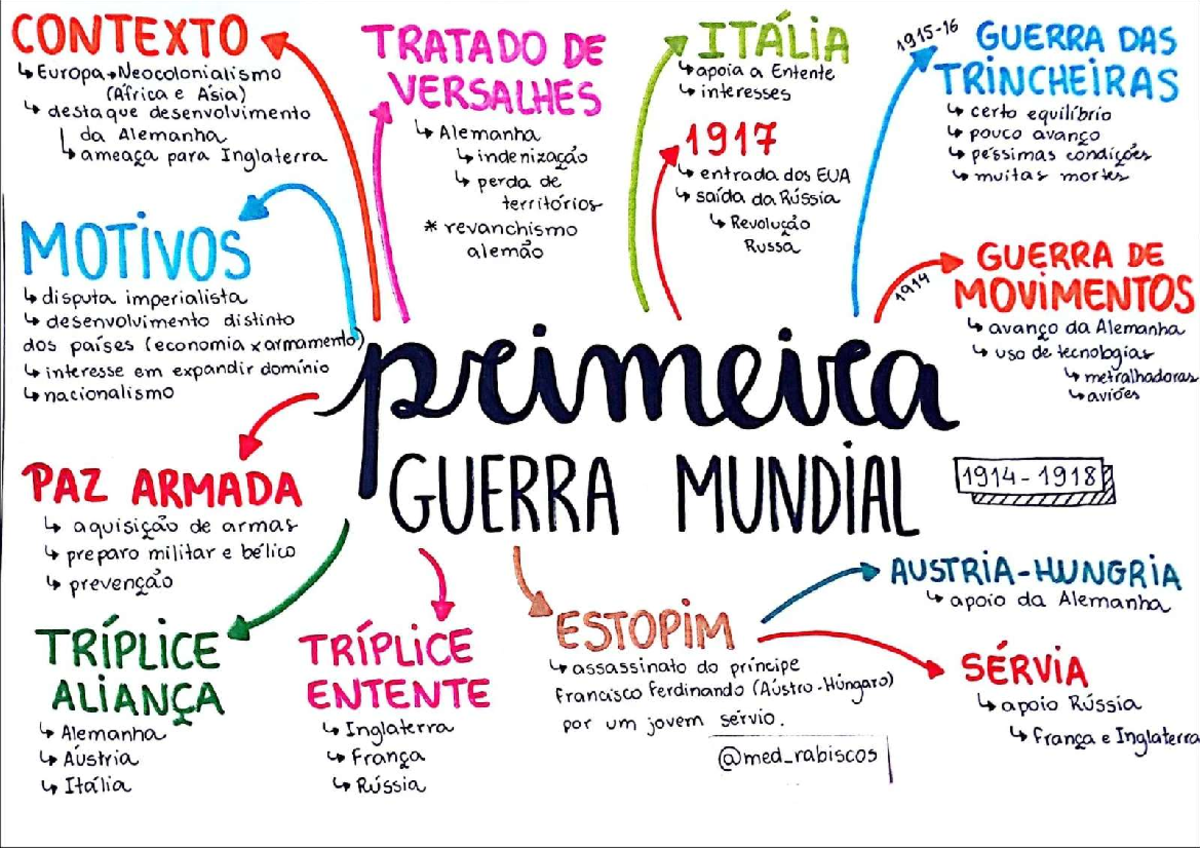 CONTEXTO
↳ Europa → Neocolonialismo
(África e Ásia)
↳ destaque desenvolvimento
da Alemanha
↳ ameaça para Inglaterra
TRATADO DE
VERSALHES
↳ Alemanha
↳ indenização
↳ perda de
territórios
* revanchismo
alemão
ITÁLIA
↳ apoia a Entente
↳ interesses
1917
↳ entrada dos EUA
↳ saída da Rússia
↳ Revolução
Russa
1915-16
GUERRA DAS
TRINCHEIRAS
↳ certo equilíbrio
↳ pouco avanço
↳ péssimas condições
↳ muitas mortes
MOTIVOS
↳ disputa imperialista
↳ desenvolvimento distinto
dos países (economia x armamento)
↳ interesse em expandir domínio
↳ nacionalismo
1914
GUERRA DE
MOVIMENTOS
↳ avanço da Alemanha
↳ uso de tecnologias
↳ metralhadoras
↳ aviões
primeira
GUERRA MUNDIAL
1914-1918
PAZ ARMADA
↳ aquisição de armas
↳ preparo militar e bélico
↳ prevenção
TRÍPLICE
ALIANÇA
↳ Alemanha
↳ Áustria
↳ Itália
TRÍPLICE
ENTENTE
↳ Inglaterra
↳ França
↳ Rússia
ESTOPIM
↳ assassinato do príncipe
Francisco Ferdinando (Aústro-Húngaro)
por um jovem sérvio.
AUSTRIA-HUNGRIA
↳ apoio da Alemanha
SÉRVIA
↳ apoio Rússia
↳ França e Inglaterra
@med_rabiscos